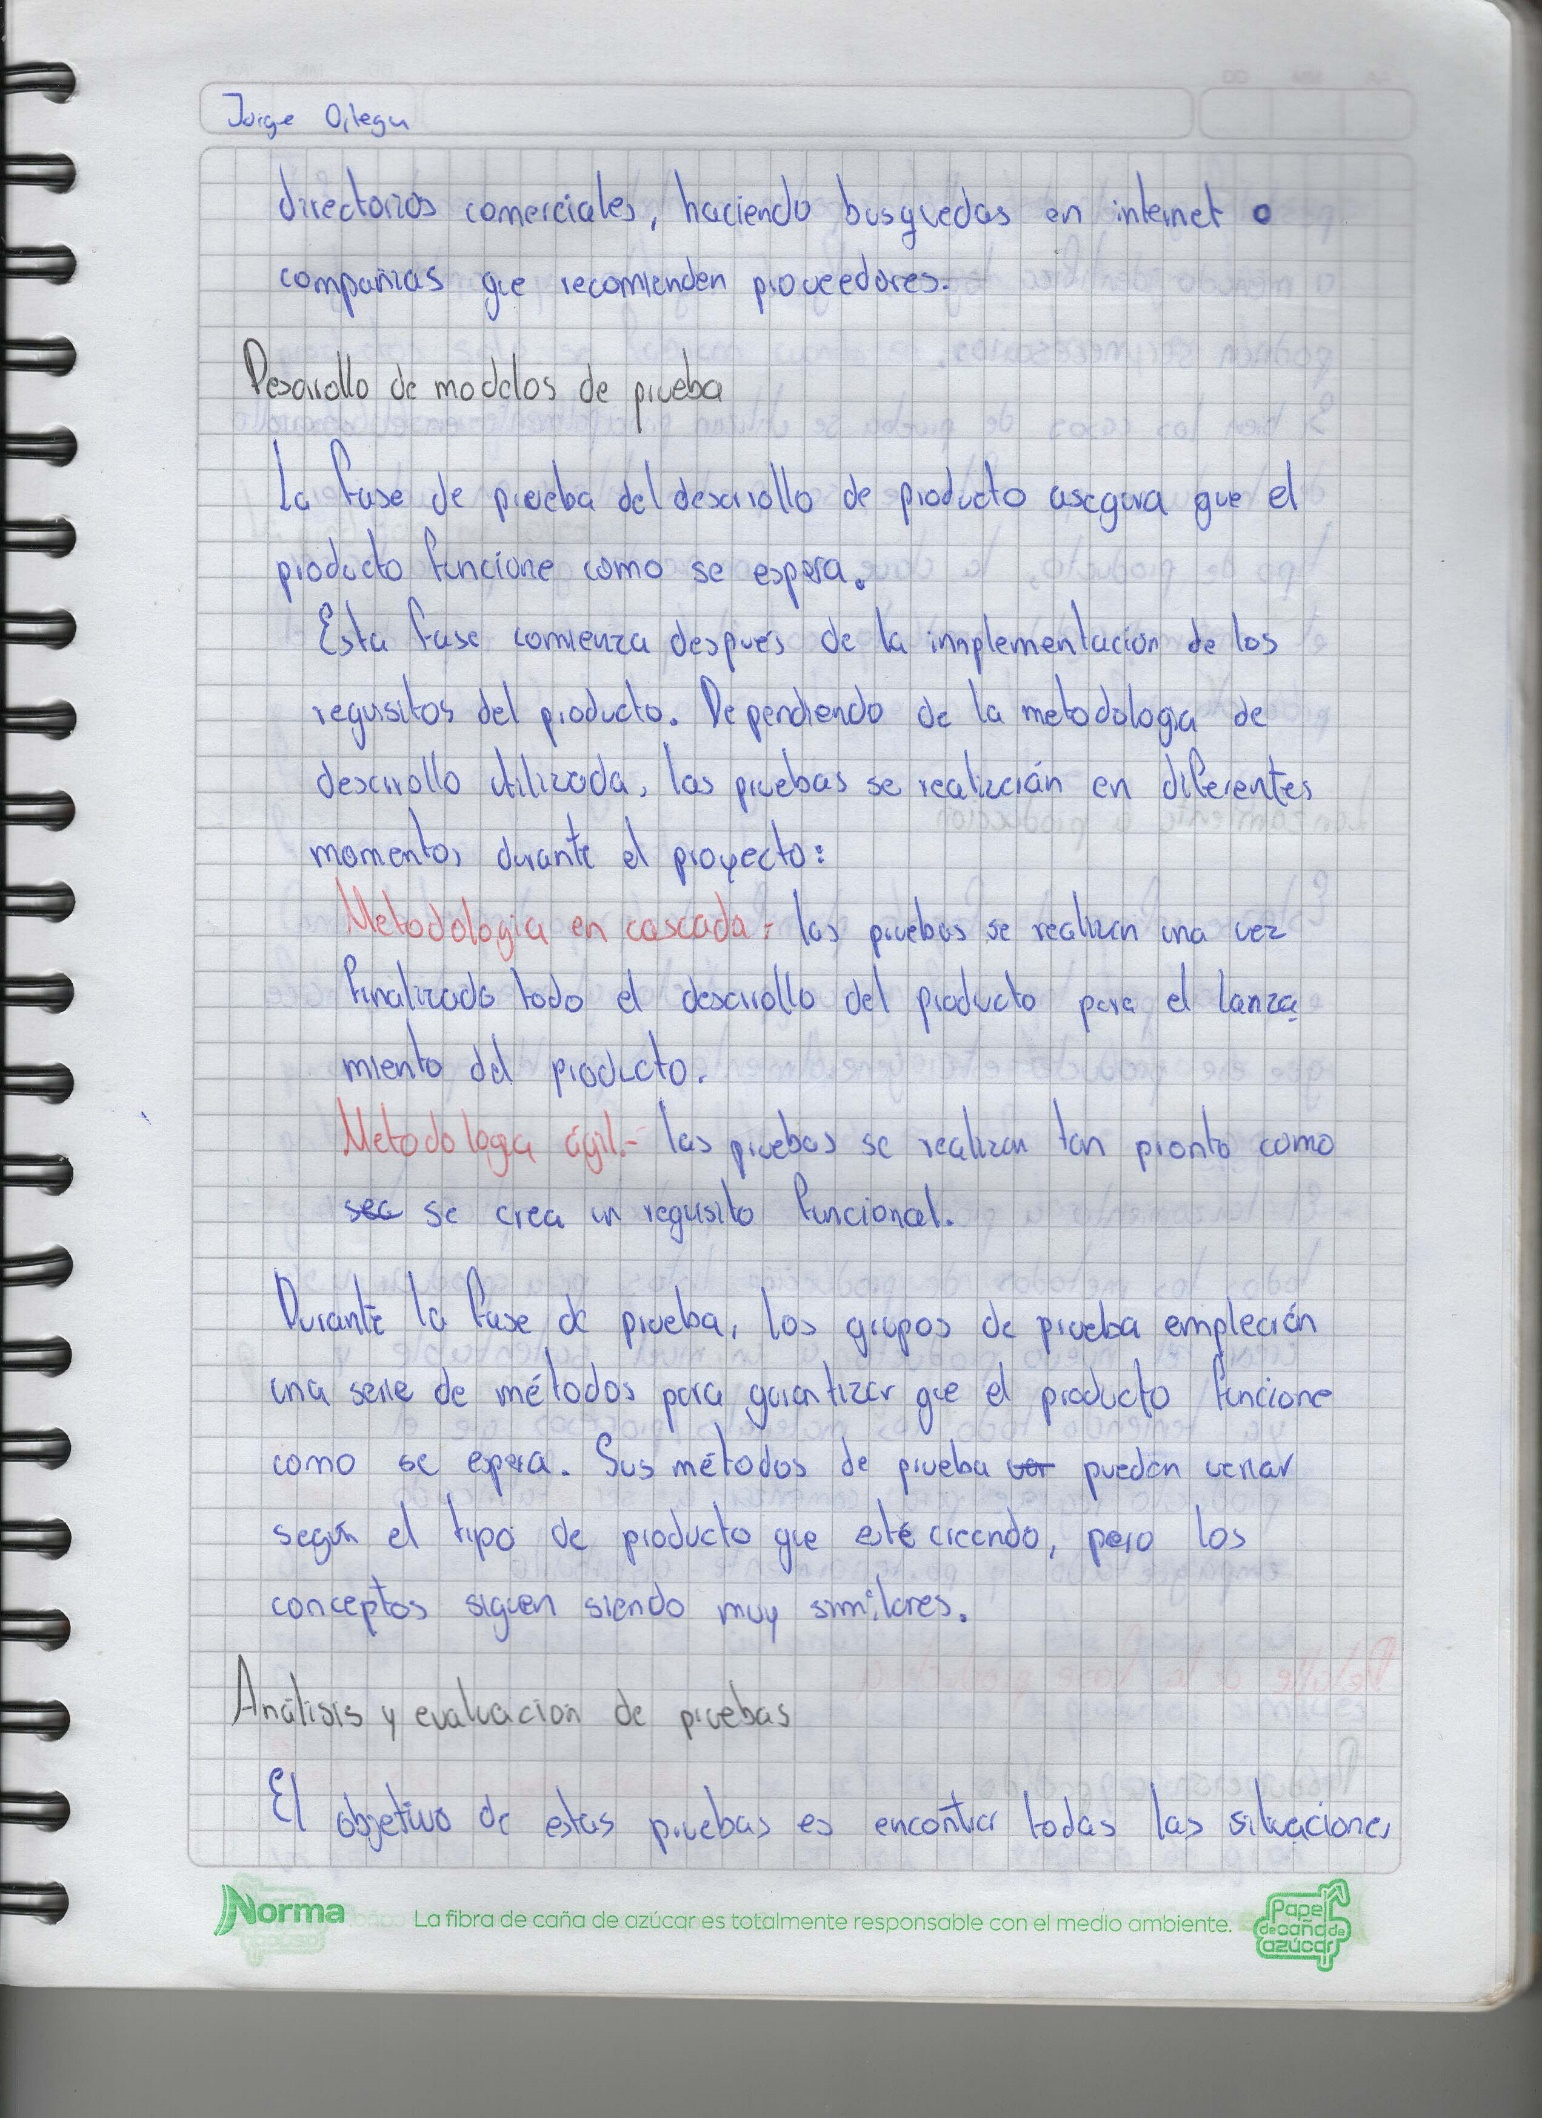 Jorge Ortega
directorios comerciales, haciendo busquedas en internet o
compañias que recomienden proveedores.
Desarrollo de modelos de prueba
La fase de prueba del desarrollo de producto asegura que el
producto funcione como se espera.
Esta fase comienza después de la implementación de los
requisitos del producto. Dependiendo de la metodologia de
desarrollo utilizada, las pruebas se realizarán en diferentes
momentos durante el proyecto:
Metodologia en cascada.- las pruebas se realizan una vez
finalizado todo el desarrollo del producto para el lanza
miento del producto.
Metodologa ágil.- las pruebas se realizan tan pronto como
sea se crea un requisito funcional.
Durante la fase de prueba, los grupos de prueba emplearán
una serie de métodos para garantizar que el producto funcione
como se espera. Sus métodos de prueba var pueden variar
según el tipo de producto que esté creando, pero los
conceptos siguen siendo muy similares.
Análisis y evaluación de pruebas
El objetivo de estas pruebas es encontrar todas las situaciones
Norma La fibra de caña de azúcar es totalmente responsable con el medio ambiente. Papel
de caña de
azúcar